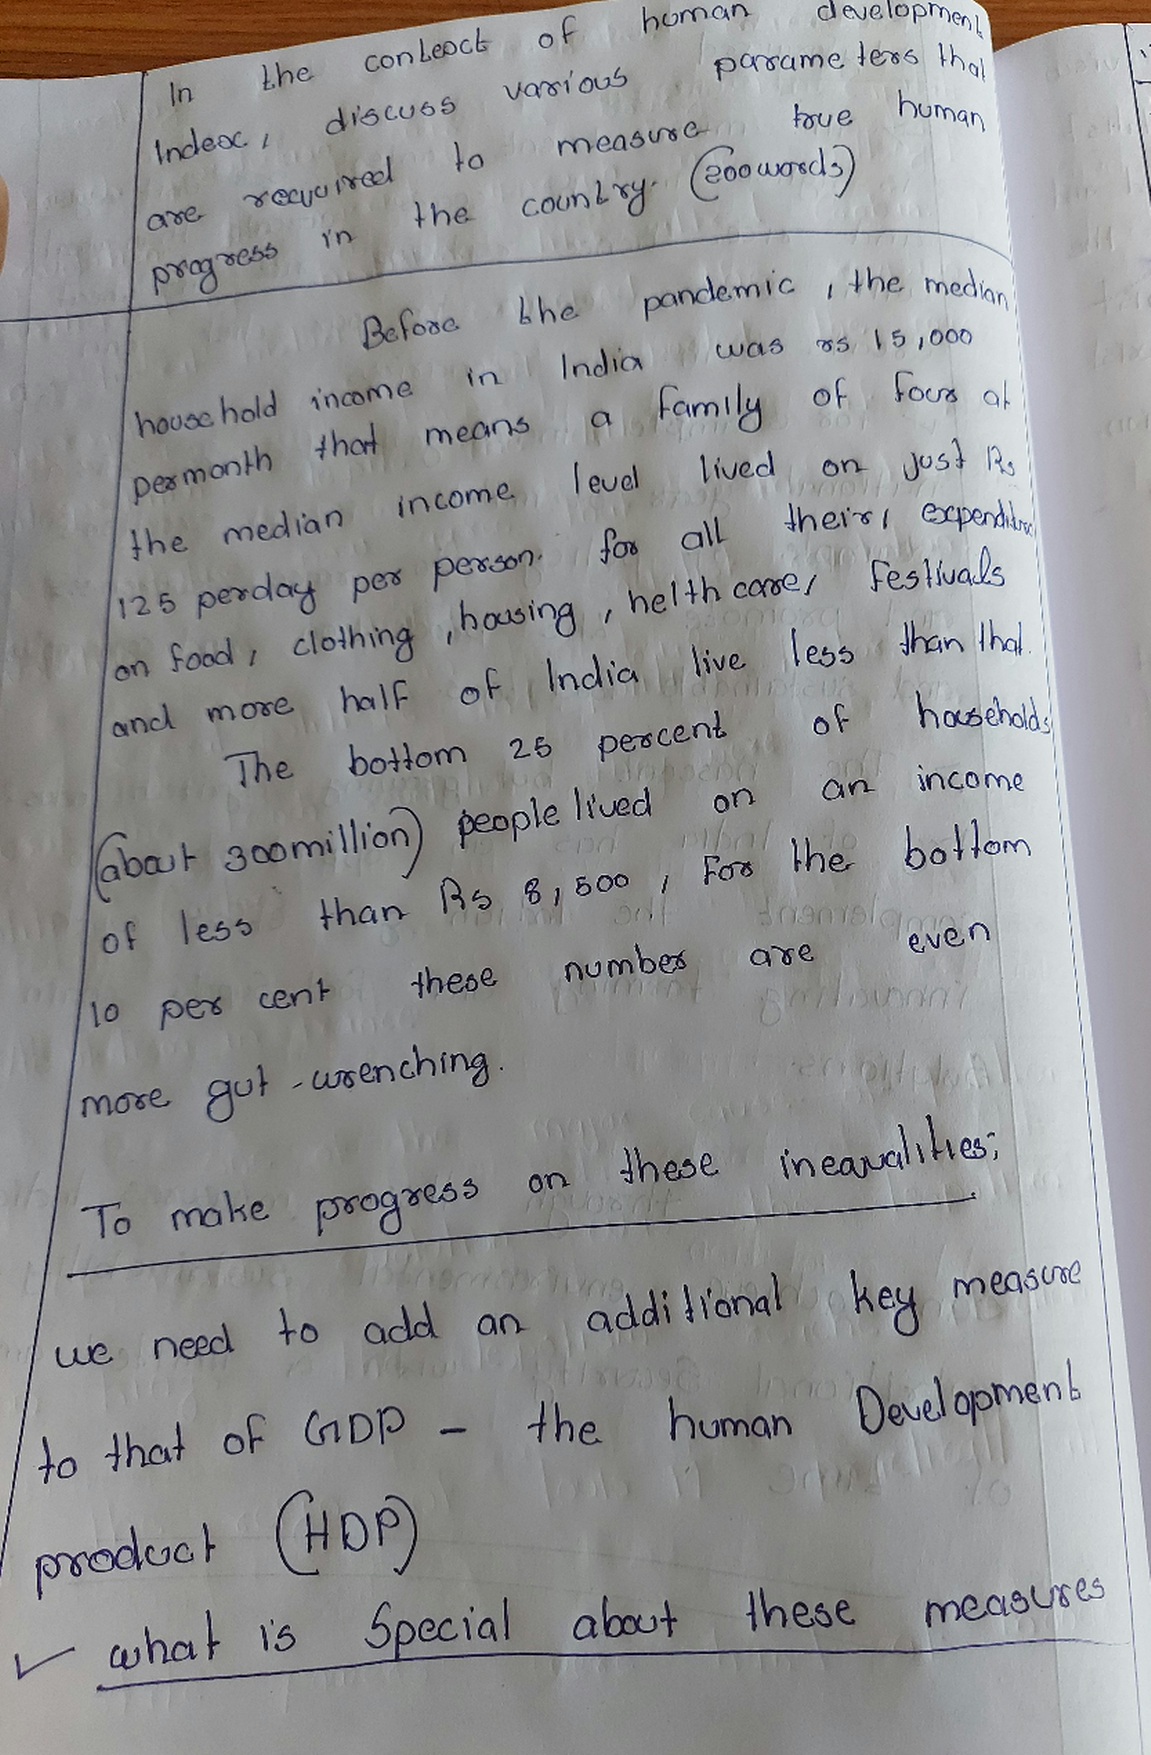 In the context of human development
Index, discuss various parameters that
are required to measure true human
progress in the country. (200words)
Before the pandemic, the median
household income in India was rs 15,000
permonth that means a family of four at
the median income level lived on just Rs
125 perday per person. for all their, expenditure
on food, clothing, housing, helth care, Festivals
and more half of India live less than that.
The bottom 25 percent of households
(about 300million) people lived on an income
of less than Rs 8,500, For the bottom
10 per cent these number are even
more gut-wrenching.
To make progress on these inequalities;
we need to add an additional key measure
to that of GDP - the human Development
product (HDP)
✓ what is Special about these measures